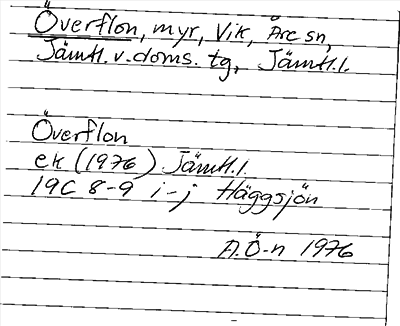 Överflon, myr, Vik, Åre sn,
Jämtl. v. doms. tg, Jämtl. l.
Överflon
ek (1976) Jämtl. l.
19C 8-9 i-j Häggsjön
A.Ö-n 1976